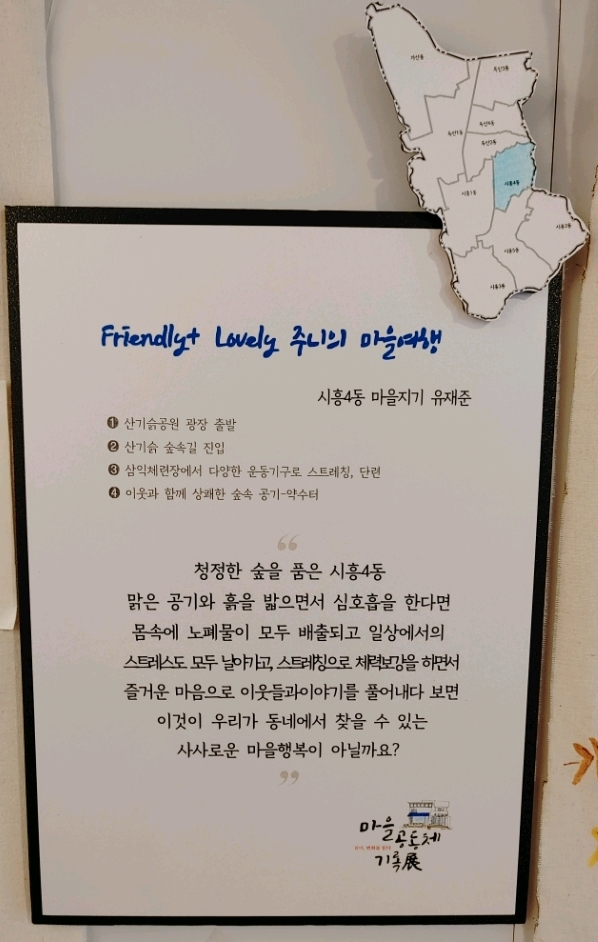 가산동
독산3동
독산4동
독산1동
독산2동
시흥4동
시흥1동
시흥2동
시흥5동
시흥3동
Friendly+ Lovely 주니의 마을여행
시흥4동 마을지기 유재준
❶ 산기슭공원 광장 출발
❷ 산기슭 숲속길 진입
❸ 삼익체련장에서 다양한 운동기구로 스트레칭, 단련
❹ 이웃과 함께 상쾌한 숲속 공기-약수터
“
청정한 숲을 품은 시흥4동
맑은 공기와 흙을 밟으면서 심호흡을 한다면
몸속에 노폐물이 모두 배출되고 일상에서의
스트레스도 모두 날아가고, 스트레칭으로 체력보강을 하면서
즐거운 마음으로 이웃들과이야기를 풀어내다 보면
이것이 우리가 동네에서 찾을 수 있는
사사로운 마을행복이 아닐까요?
”
마을공동체
기록展